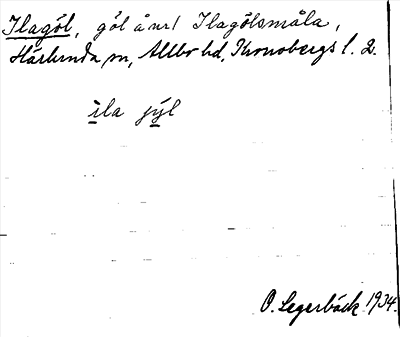 Ilagöl, göl å nr 1 Ilagölsmåla,
Härlunda sn, Allbo hd, Kronobergs l. 2.
ila jýl
O. Legerbäck 1934.